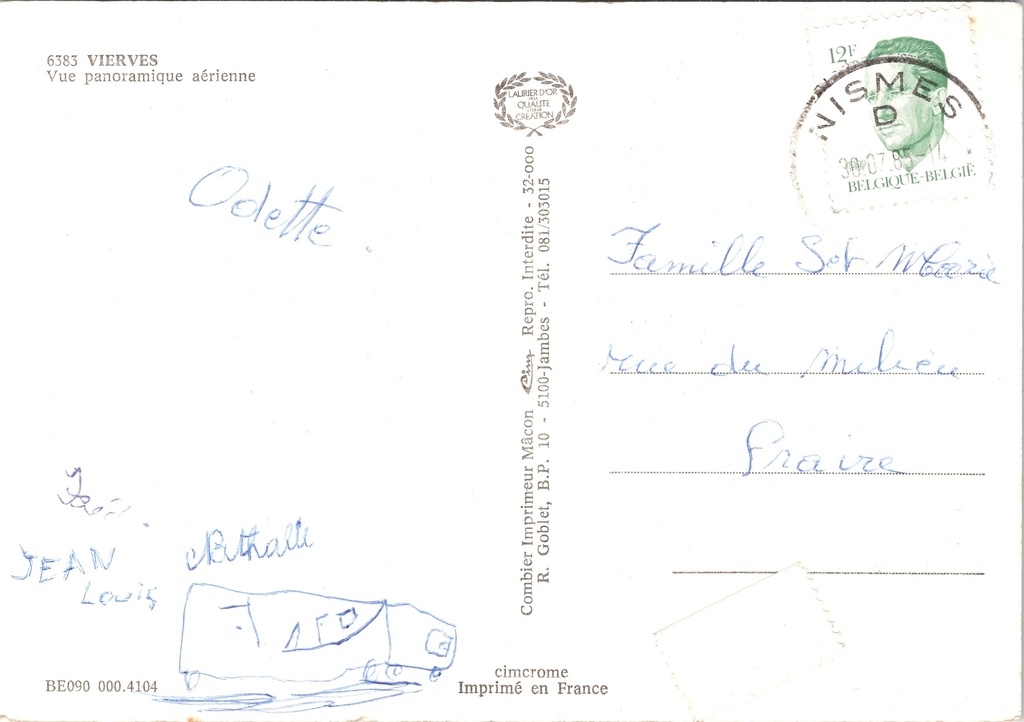 6383 VIERVES
Vue panoramique aérienne
LAURIER D'OR
DE LA
QUALITE
ET DE LA
CREATION
12F
NISMES
D
30-07.85-14
BELGIQUE-BELGIË
Odette.
Famille
rue du Milieu
Fraire
JEAN
Louis
Nathalie
Combier Imprimeur Mâcon Cim Repro. Interdite - 32-000
R. Goblet, B.P. 10 - 5100-Jambes - Tél. 081/303015
BE090 000.4104
cimcrome
Imprimé en France